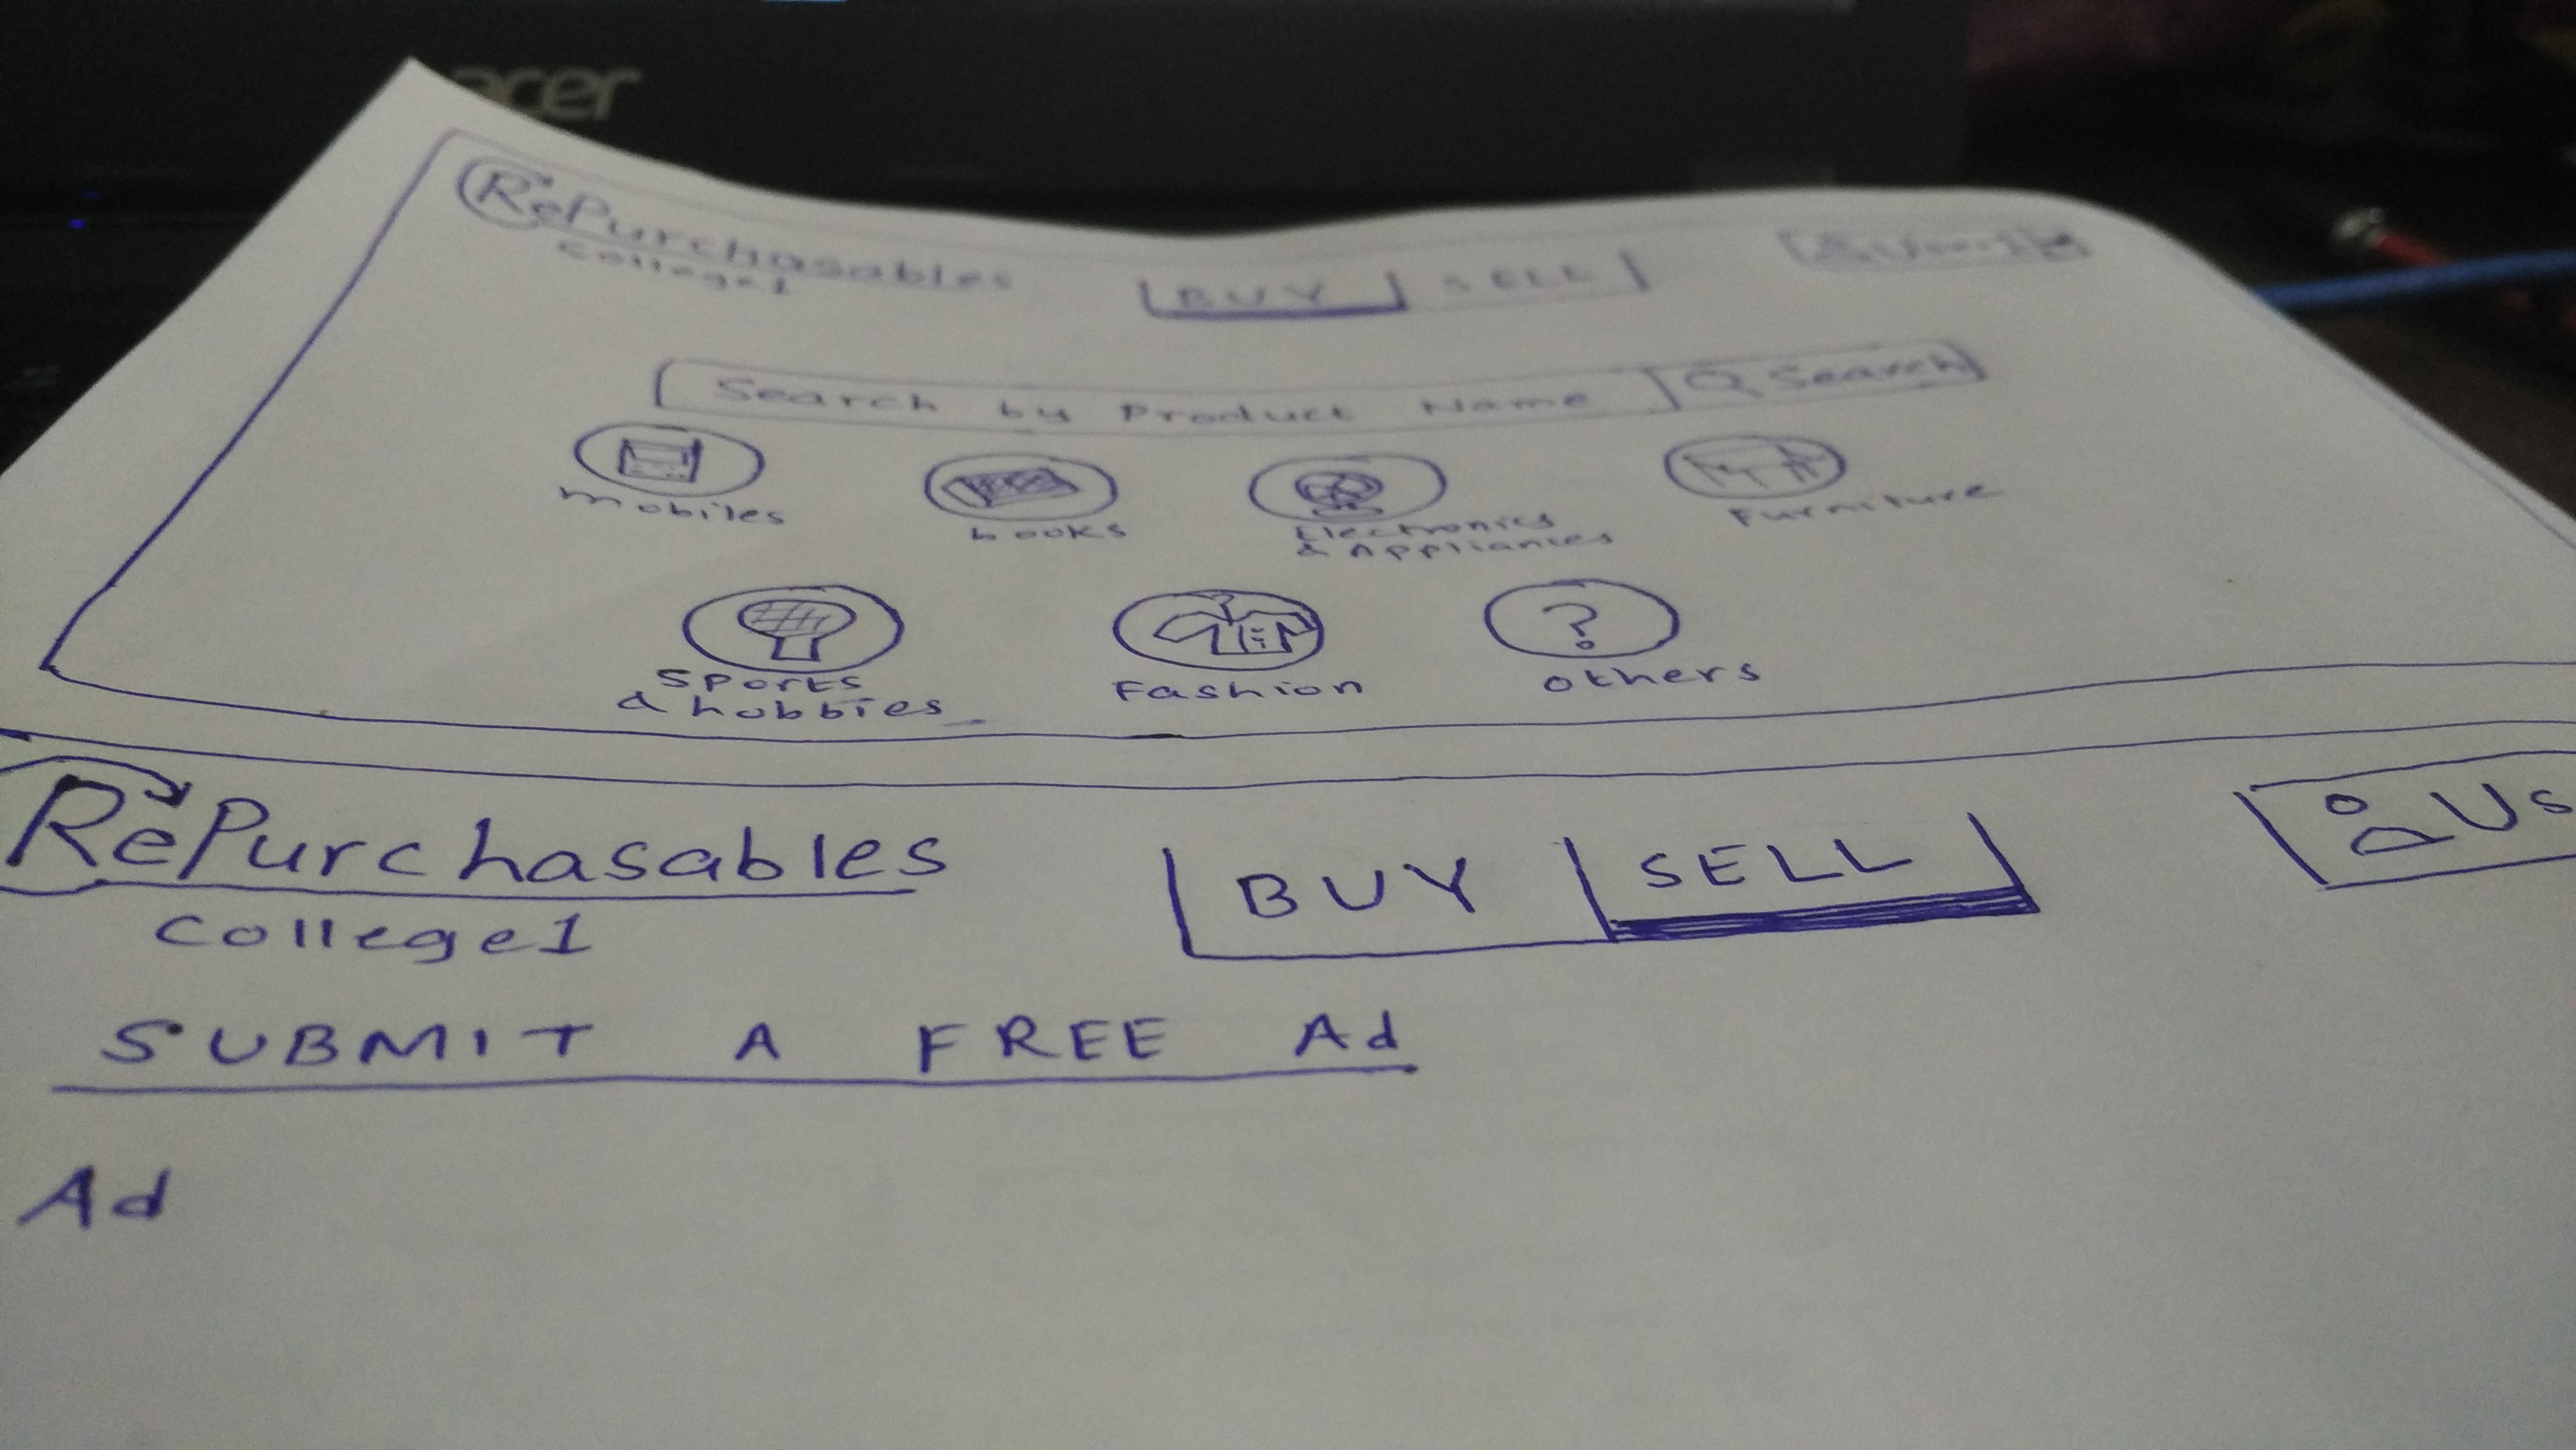 acer
RePurchasables
College1
BUY SELL
Search by Product Name Search
mobiles books Electronics & Appliances Furniture
Sports & hobbies Fashion others
RePurchasables
College1
BUY SELL
Us
SUBMIT A FREE Ad
Ad